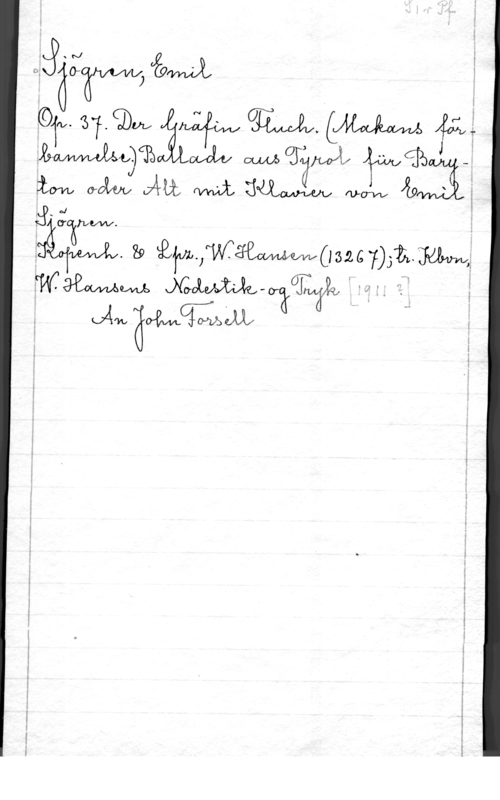 S 1 v Pf
Sjögren, Emil
Op. 37. Der Gräfin Fluch. (Makans för-
bannelse) Ballade aus Tyrol für Bary-
ton oder Alt mit Klavier von Emil
Sjögren.
Kopenh. & Lpz., W. Hansen (13267); tr. Kbvn,
W. Hansens Nodestik-og Tryk [1911 ?]
An John Forsell